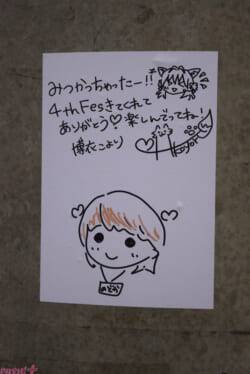 みつかっちゃったー!!
4thFesきてくれて
ありがとう♡楽しんでってね!
博衣こより